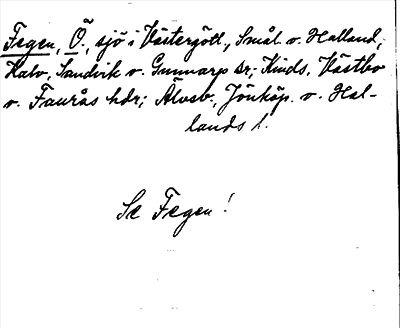 Fegen, Ö., sjö i Västergötl., Smål. o. Halland;
Kalv, Sandvik o. Gunnarp sr; Kinds, Västbo
o. Faurås hdr; Älvsb., Jönköp. o. Hal-
lands l.
Se Fegen!